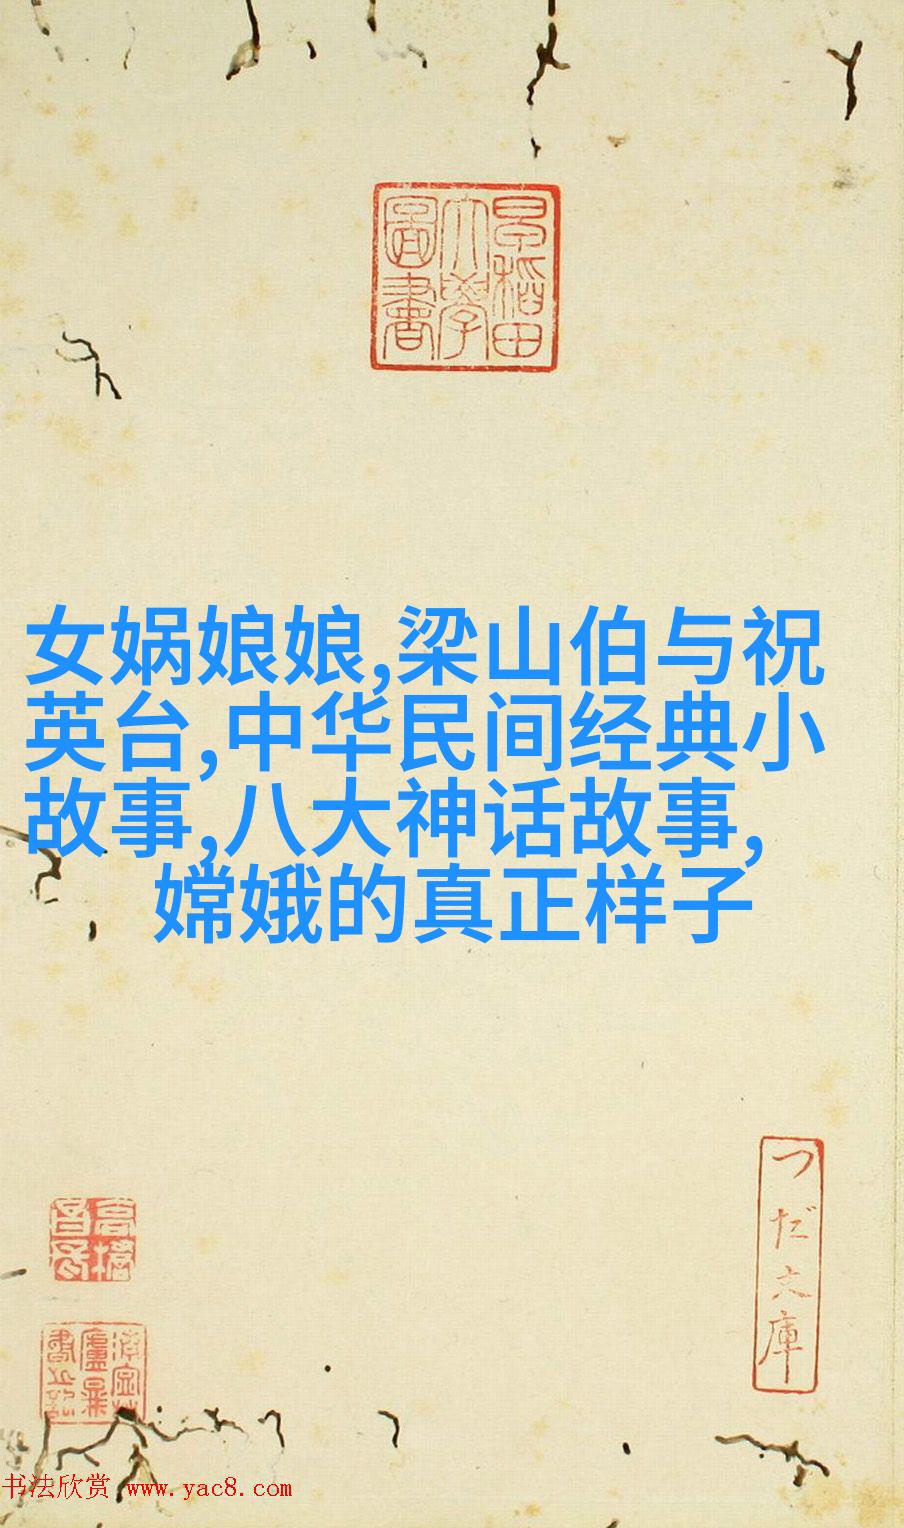 早稲田
大學
圖書
女娲娘娘,梁山伯与祝
英台,中华民间经典小
故事,八大神话故事,
嫦娥的真正样子
つだ文庫
书法欣赏 www.yac8.com